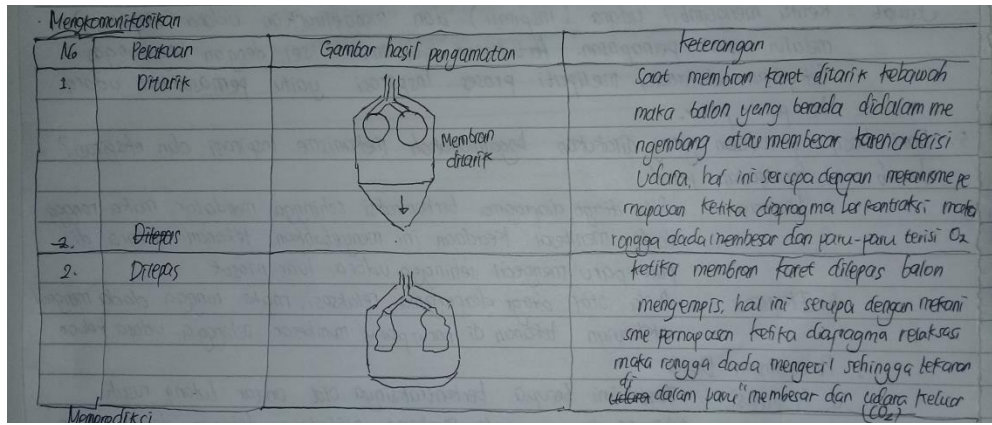 · Mengkomunikasikan
No Perlakuan Gambar hasil pengamatan keterangan
1. Ditarik
Membran
ditarik
Saat membran karet ditarik kebawah
maka balon yang berada didalam me
ngembang atau membesar karena terisi
Udara, hal ini serupa dengan mekanisme pe
rnapasan ketika diapragma berkontraksi maka
rongga dada membesar dan paru-paru terisi O2
2. Dilepas
2. Dilepas
ketika membran karet dilepas balon
mengempis, hal ini serupa dengan mekani
sme pernapasan ketika diapragma relaksasi
maka rongga dada mengecil sehingga tekanan
di
udara dalam paru" membesar dan udara keluar
(CO2)
Memprediksi